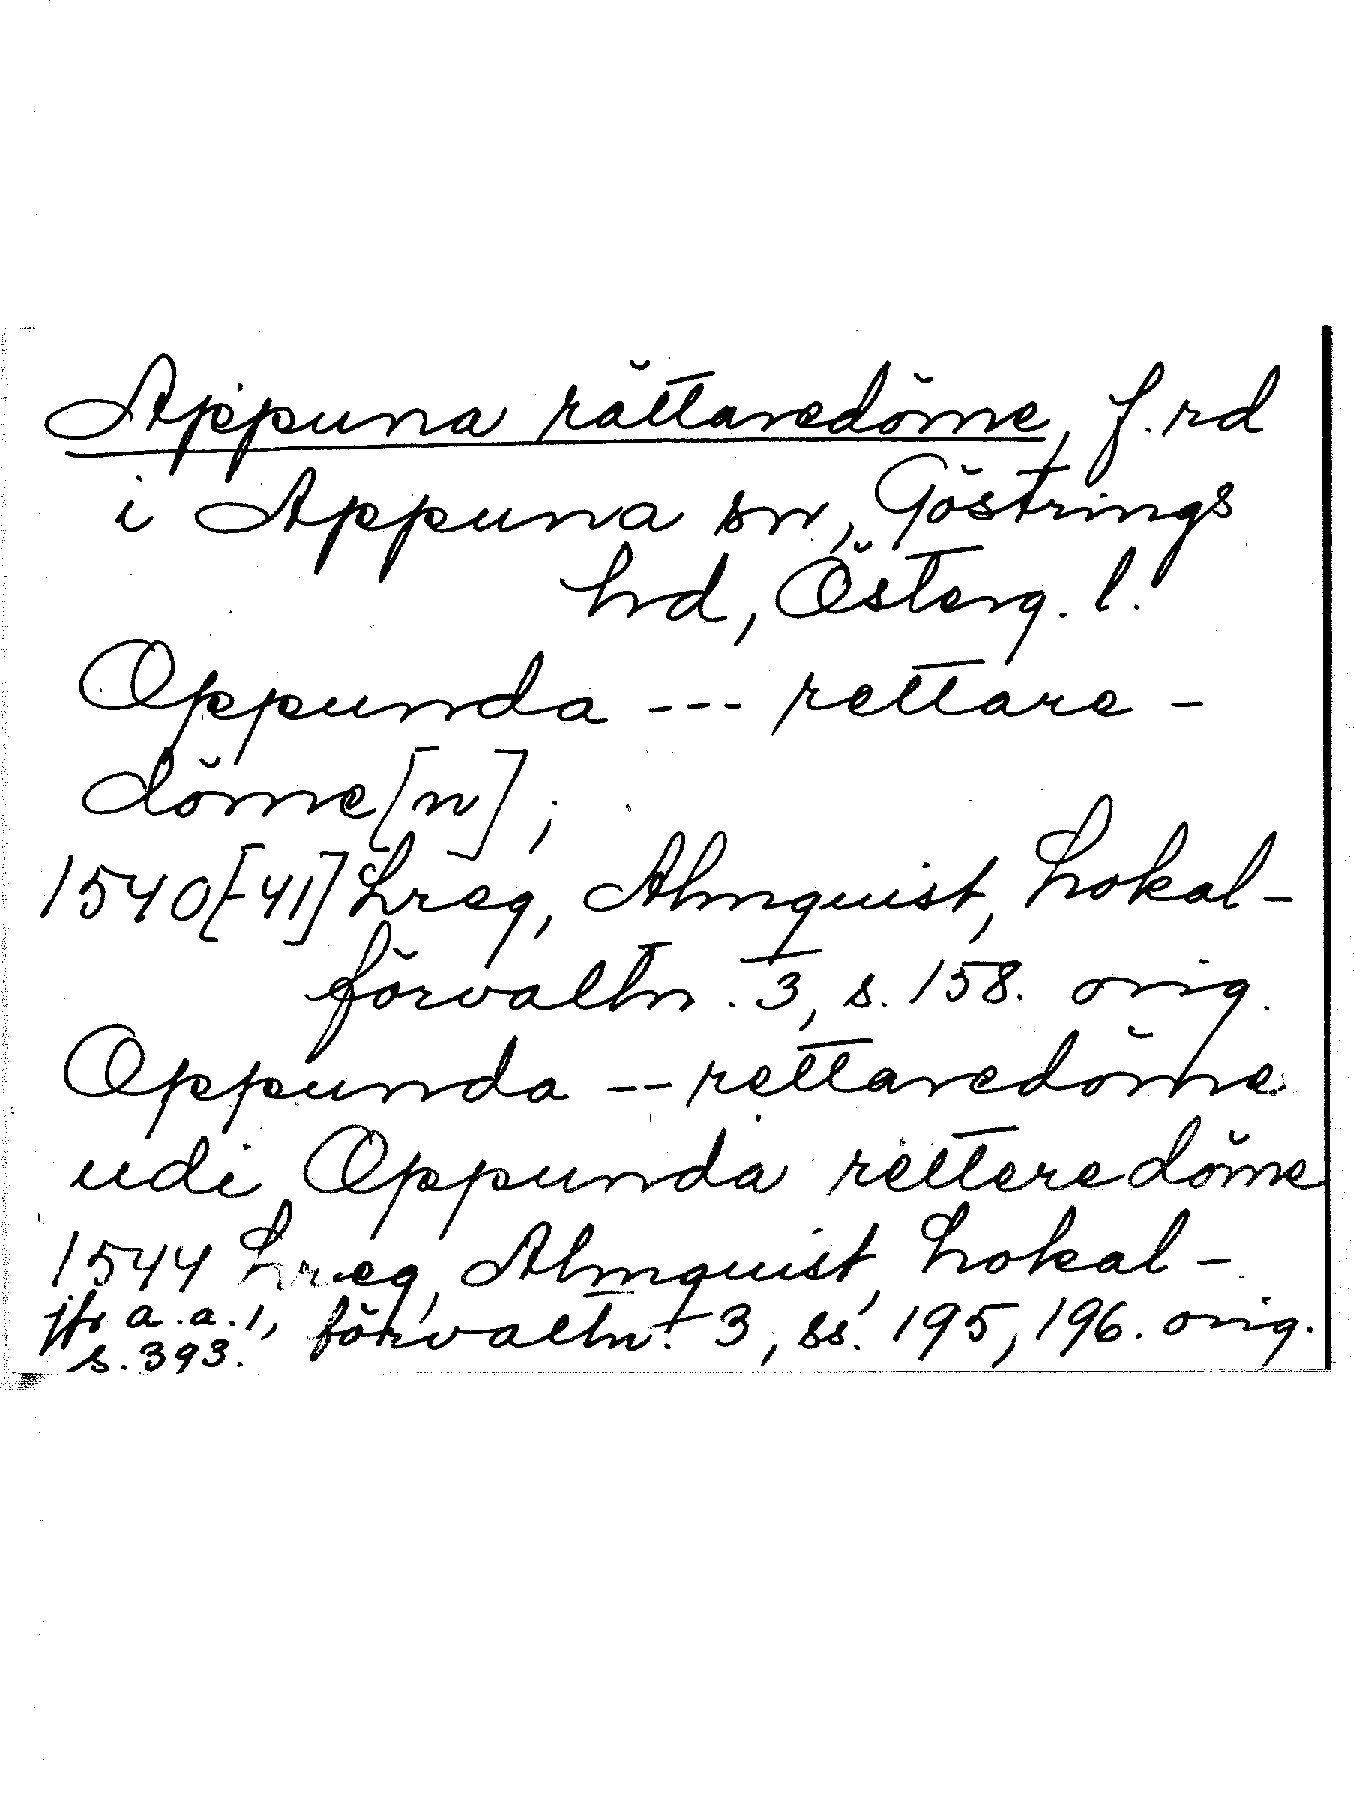 Appuna rättaredöme, f.rd
i Appuna sn, Göstrings
hrd, Österg. l.
Oppunda --- rettare-
döme[n];
1540[-41] Lreg, Almquist, Lokal-
förvaltn. 3, s. 158. orig.
Oppunda -- rettaredöme
udi Oppunda retteredöme
1544 Lreg, Almquist, Lokal-
jfr a.a. 1, förvaltn. 3, ss. 195, 196. orig.
s. 393.